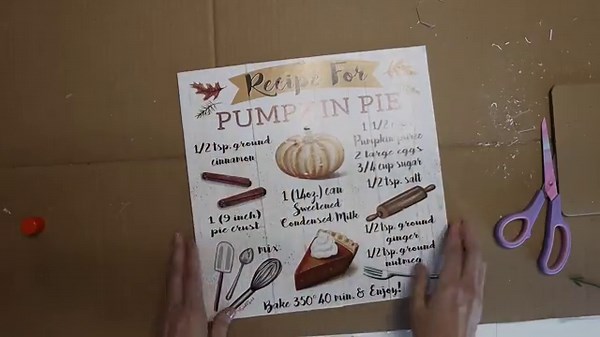 Recipe For
PUMPKIN PIE
1/2 tsp. ground
cinnamon
1 (9 inch)
pie crust
mix:
1 (14oz.) can
Sweetened
Condensed Milk
Pumpkin
2 large eggs
3/4 cup sugar
1/2 tsp. salt
1/2 tsp. ground
ginger
1/2 tsp. ground
nutmeg
Bake 350° 40 min. & Enjoy!